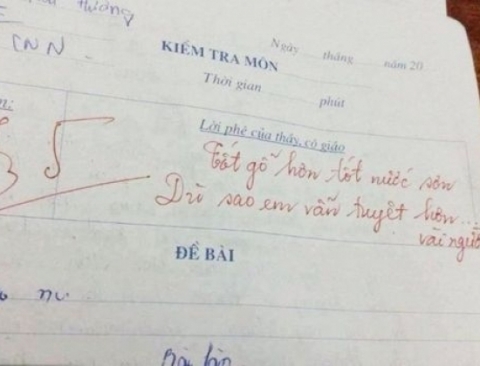 thương
CNN
KIỂM TRA MÔN
Ngày tháng năm 20
Thời gian phút
Lời phê của thầy, cô giáo
Tốt gỗ hơn tốt nước sơn
Dù sao em vẫn tuyệt hơn...
vài người
ĐỀ BÀI
Bài làm